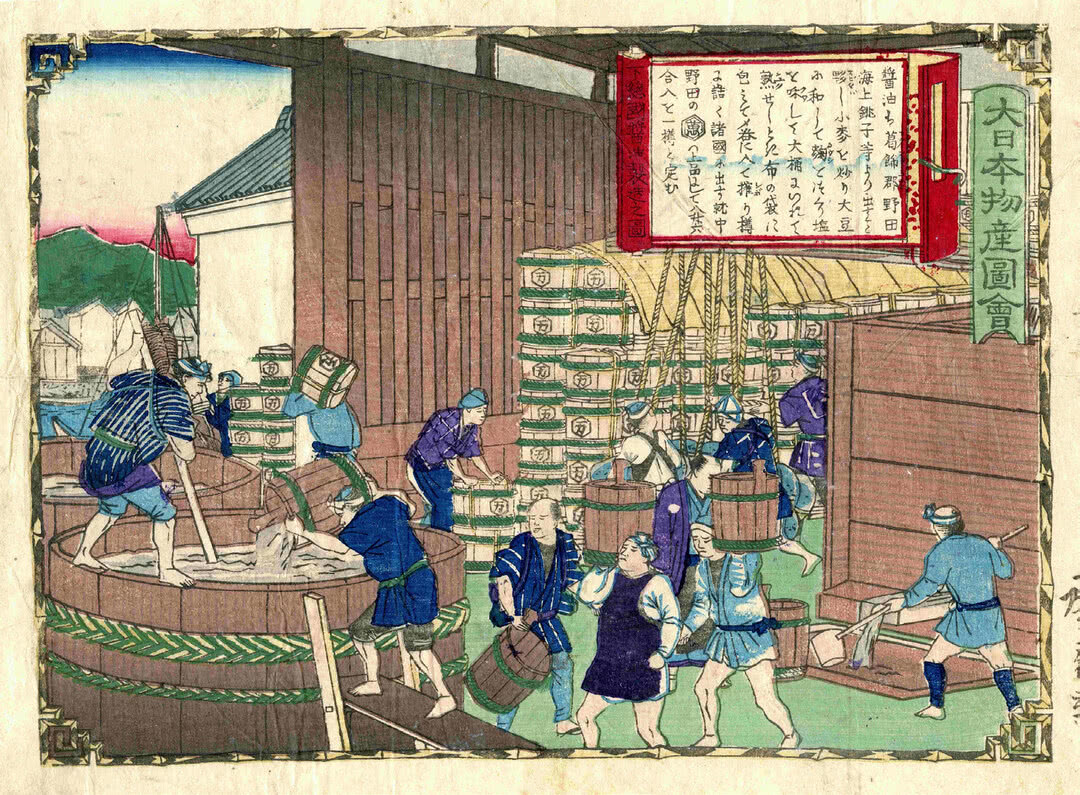 大日本物産圖會
醤油は葛飾郡野田
海上銚子等より出すを
夥し小麦を炒り大豆
に和して麹をつくり塩
を和して大桶にいれて
熟せしとき布の袋に
包ミて〆呑に入て搾り樽
に詰く諸國に出す就中
野田の萬の上品にして廿六
合入を一樽と定む
下總國醤油製造之圖